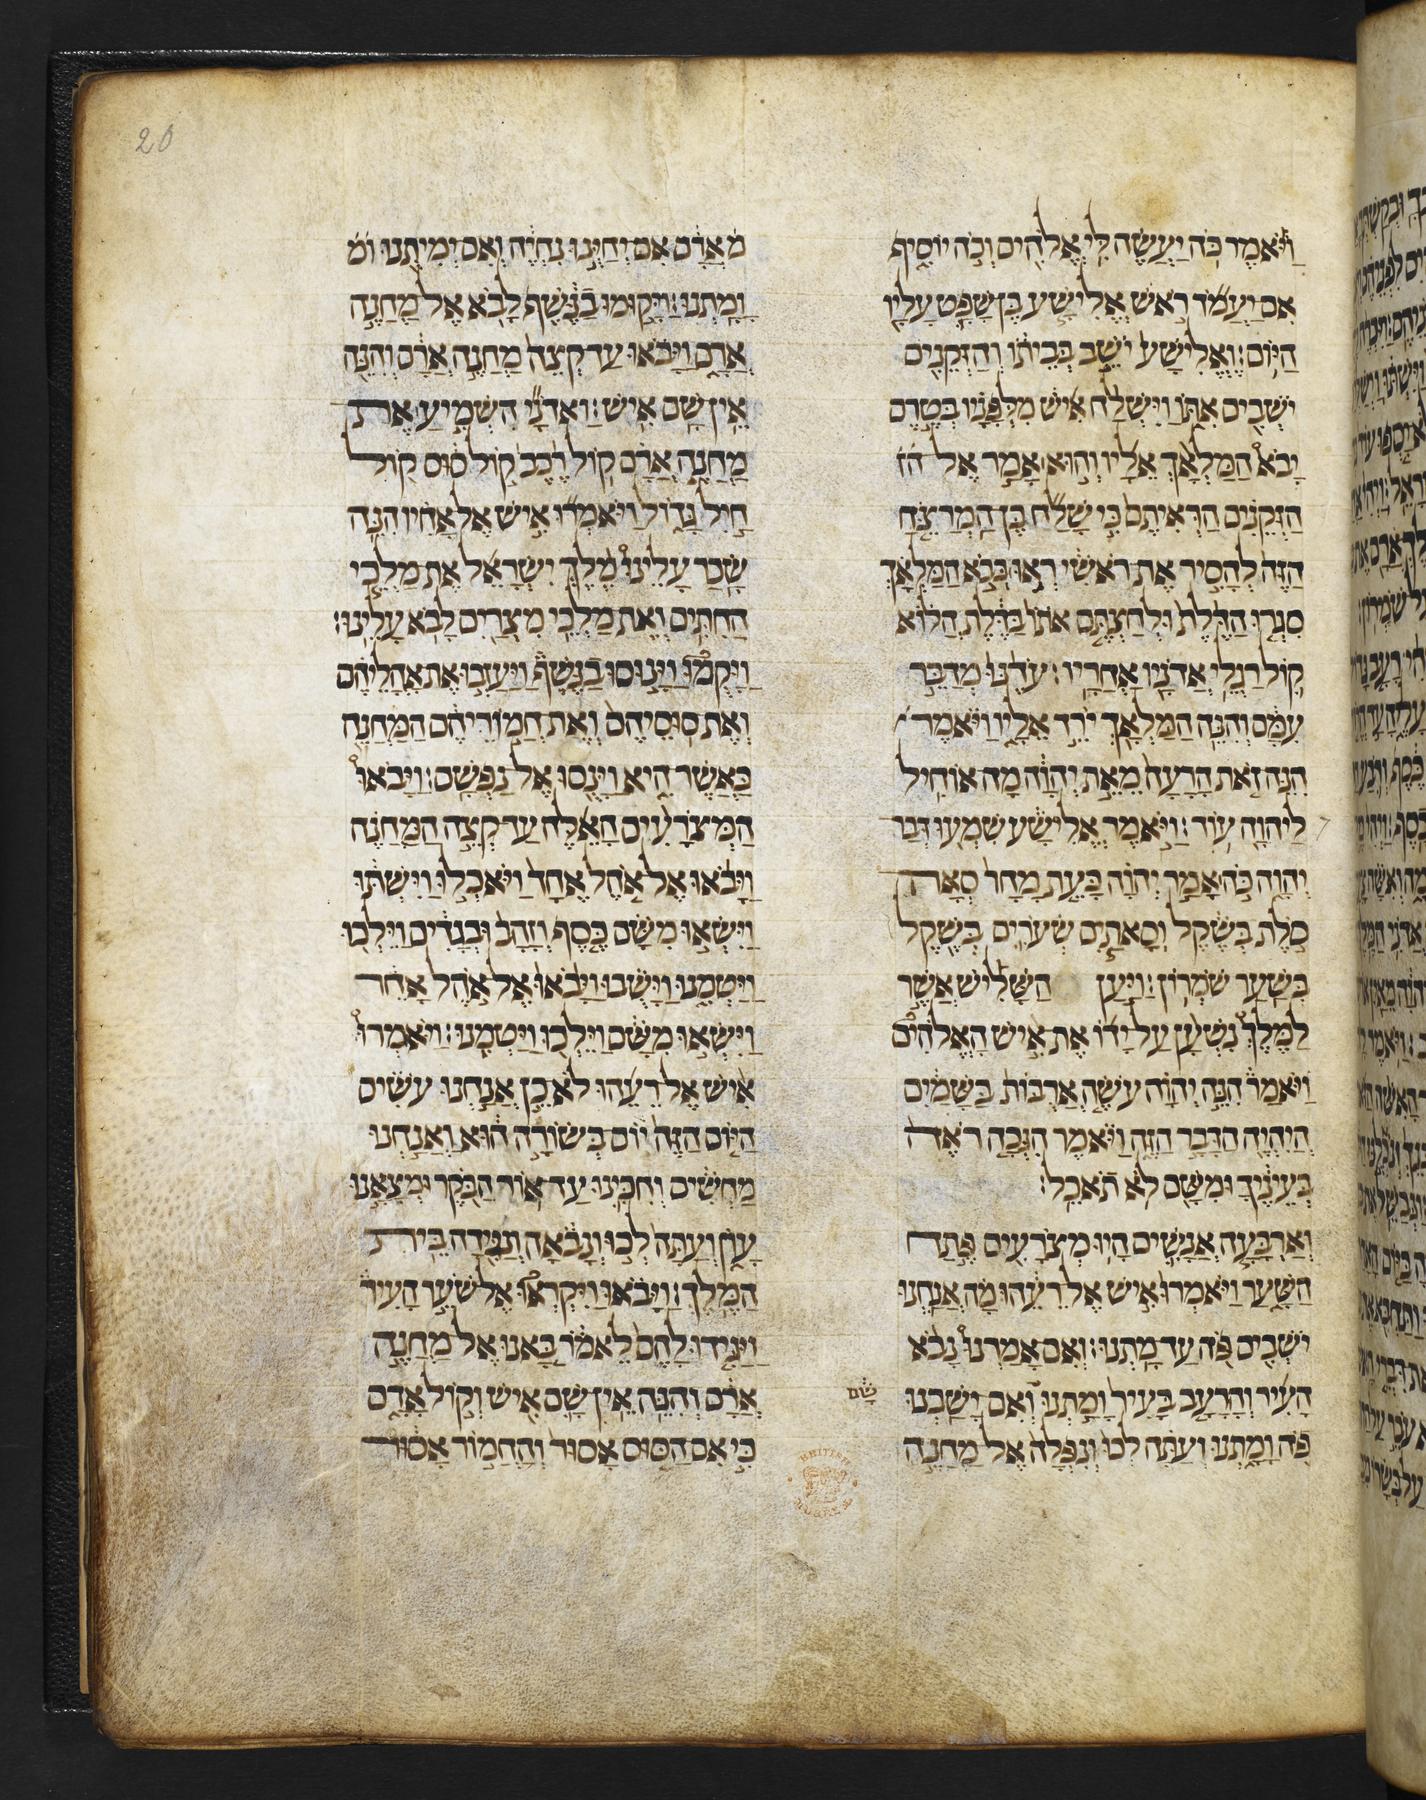 20
וַיֹּאמֶר כֹּה יַעֲשֶׂה לִּי אֱלֹהִים וְכֹה יוֹסִיף
אִם יַעֲמֹד רֹאשׁ אֱלִישָׁע בֶּן שָׁפָט עָלָיו
הַיּוֹם׃ וֶאֱלִישָׁע יֹשֵׁב בְּבֵיתוֹ וְהַזְּקֵנִים
יֹשְׁבִים אִתּוֹ וַיִּשְׁלַח אִישׁ מִלְּפָנָיו בְּטֶרֶם
יָבֹא הַמַּלְאָךְ אֵלָיו וְהוּא אָמַר אֶל הז
הַזְּקֵנִים הַרְּאִיתֶם כִּי שָׁלַח בֶּן הַמְרַצֵּחַ
הַזֶּה לְהָסִיר אֶת רֹאשִׁי רְאוּ כְּבֹא הַמַּלְאָךְ
סִגְרוּ הַדֶּלֶת וּלְחַצְתֶּם אֹתוֹ בַּדֶּלֶת הֲלוֹא
קוֹל רַגְלֵי אֲדֹנָיו אַחֲרָיו׃ עוֹדֶנּוּ מְדַבֵּר
עִמָּם וְהִנֵּה הַמַּלְאָךְ יֹרֵד אֵלָיו וַיֹּאמֶר
הִנֵּה זֹאת הָרָעָה מֵאֵת יְהוָה מָה אוֹחִיל
לַיהוָה עוֹד׃ וַיֹּאמֶר אֱלִישָׁע שִׁמְעוּ דְּבַר
יְהוָה כֹּה אָמַר יְהוָה כָּעֵת מָחָר סְאָה
סֹלֶת בְּשֶׁקֶל וְסָאתַיִם שְׂעֹרִים בְּשֶׁקֶל
בְּשַׁעַר שֹׁמְרוֹן׃ וַיַּעַן הַשָּׁלִישׁ אֲשֶׁר
לַמֶּלֶךְ נִשְׁעָן עַל יָדוֹ אֶת אִישׁ הָאֱלֹהִים
וַיֹּאמַר הִנֵּה יְהוָה עֹשֶׂה אֲרֻבּוֹת בַּשָּׁמַיִם
הֲיִהְיֶה הַדָּבָר הַזֶּה וַיֹּאמֶר הִנְּכָה רֹאֶה
בְּעֵינֶיךָ וּמִשָּׁם לֹא תֹאכֵל׃
וְאַרְבָּעָה אֲנָשִׁים הָיוּ מְצֹרָעִים פֶּתַח
הַשָּׁעַר וַיֹּאמְרוּ אִישׁ אֶל רֵעֵהוּ מָה אֲנַחְנוּ
יֹשְׁבִים פֹּה עַד מָתְנוּ׃ וְאִם אָמַרְנוּ נָבֹא
הָעִיר וְהָרָעָב בָּעִיר וָמַתְנוּ וְאִם יָשַׁבְנוּ
שָׁם
פֹה וָמָתְנוּ וְעַתָּה לְכוּ וְנִפְּלָה אֶל מַחֲנֵה
מ אֲרָם אִם יְחַיֻּנוּ נִחְיֶה וְאִם יְמִיתֻנוּ ומ
וָמָתְנוּ׃ וַיָּקוּמוּ בַנֶּשֶׁף לָבֹא אֶל מַחֲנֵה
אֲרָם וַיָּבֹאוּ עַד קְצֵה מַחֲנֵה אֲרָם וְהִנֵּה
אֵין שָׁם אִישׁ׃ וַאדֹנָי הִשְׁמִיעַ אֶת
מַחֲנֵה אֲרָם קוֹל רֶכֶב קוֹל סוּס קוֹל
חַיִל גָּדוֹל וַיֹּאמְרוּ אִישׁ אֶל אָחִיו הִנֵּה
שָׂכַר עָלֵינוּ מֶלֶךְ יִשְׂרָאֵל אֶת מַלְכֵי
הַחִתִּים וְאֶת מַלְכֵי מִצְרַיִם לָבֹא עָלֵינוּ׃
וַיָּקֻמוּ וַיָּנוּסוּ בַנֶּשֶׁף וַיַּעַזְבוּ אֶת אָהֳלֵיהֶם
וְאֶת סוּסֵיהֶם וְאֶת חֲמוֹרֵיהֶם הַמַּחֲנֶה
כַּאֲשֶׁר הִיא וַיָּנֻסוּ אֶל נַפְשָׁם׃ וַיָּבֹאוּ
הַמְּצֹרָעִים הָאֵלֶּה עַד קְצֵה הַמַּחֲנֶה
וַיָּבֹאוּ אֶל אֹהֶל אֶחָד וַיֹּאכְלוּ וַיִּשְׁתּוּ
וַיִּשְׂאוּ מִשָּׁם כֶּסֶף וְזָהָב וּבְגָדִים וַיֵּלְכוּ
וַיַּטְמִנוּ וַיָּשֻׁבוּ וַיָּבֹאוּ אֶל אֹהֶל אַחֵר
וַיִּשְׂאוּ מִשָּׁם וַיֵּלְכוּ וַיַּטְמִנוּ׃ וַיֹּאמְרוּ
אִישׁ אֶל רֵעֵהוּ לֹא כֵן אֲנַחְנוּ עֹשִׂים
הַיּוֹם הַזֶּה יוֹם בְּשׂוֹרָה הוּא וַאֲנַחְנוּ
מַחְשִׁים וְחִכִּינוּ עַד אוֹר הַבֹּקֶר וּמְצָאָנוּ
עָוֹן וְעַתָּה לְכוּ וְנָבֹאָה וְנַגִּידָה בֵּית
הַמֶּלֶךְ׃ וַיָּבֹאוּ וַיִּקְרְאוּ אֶל שֹׁעֵר הָעִיר
וַיַּגִּידוּ לָהֶם לֵאמֹר בָּאנוּ אֶל מַחֲנֵה
אֲרָם וְהִנֵּה אֵין שָׁם אִישׁ וְקוֹל אָדָם
כִּי אִם הַסּוּס אָסוּר וְהַחֲמוֹר אָסוּר